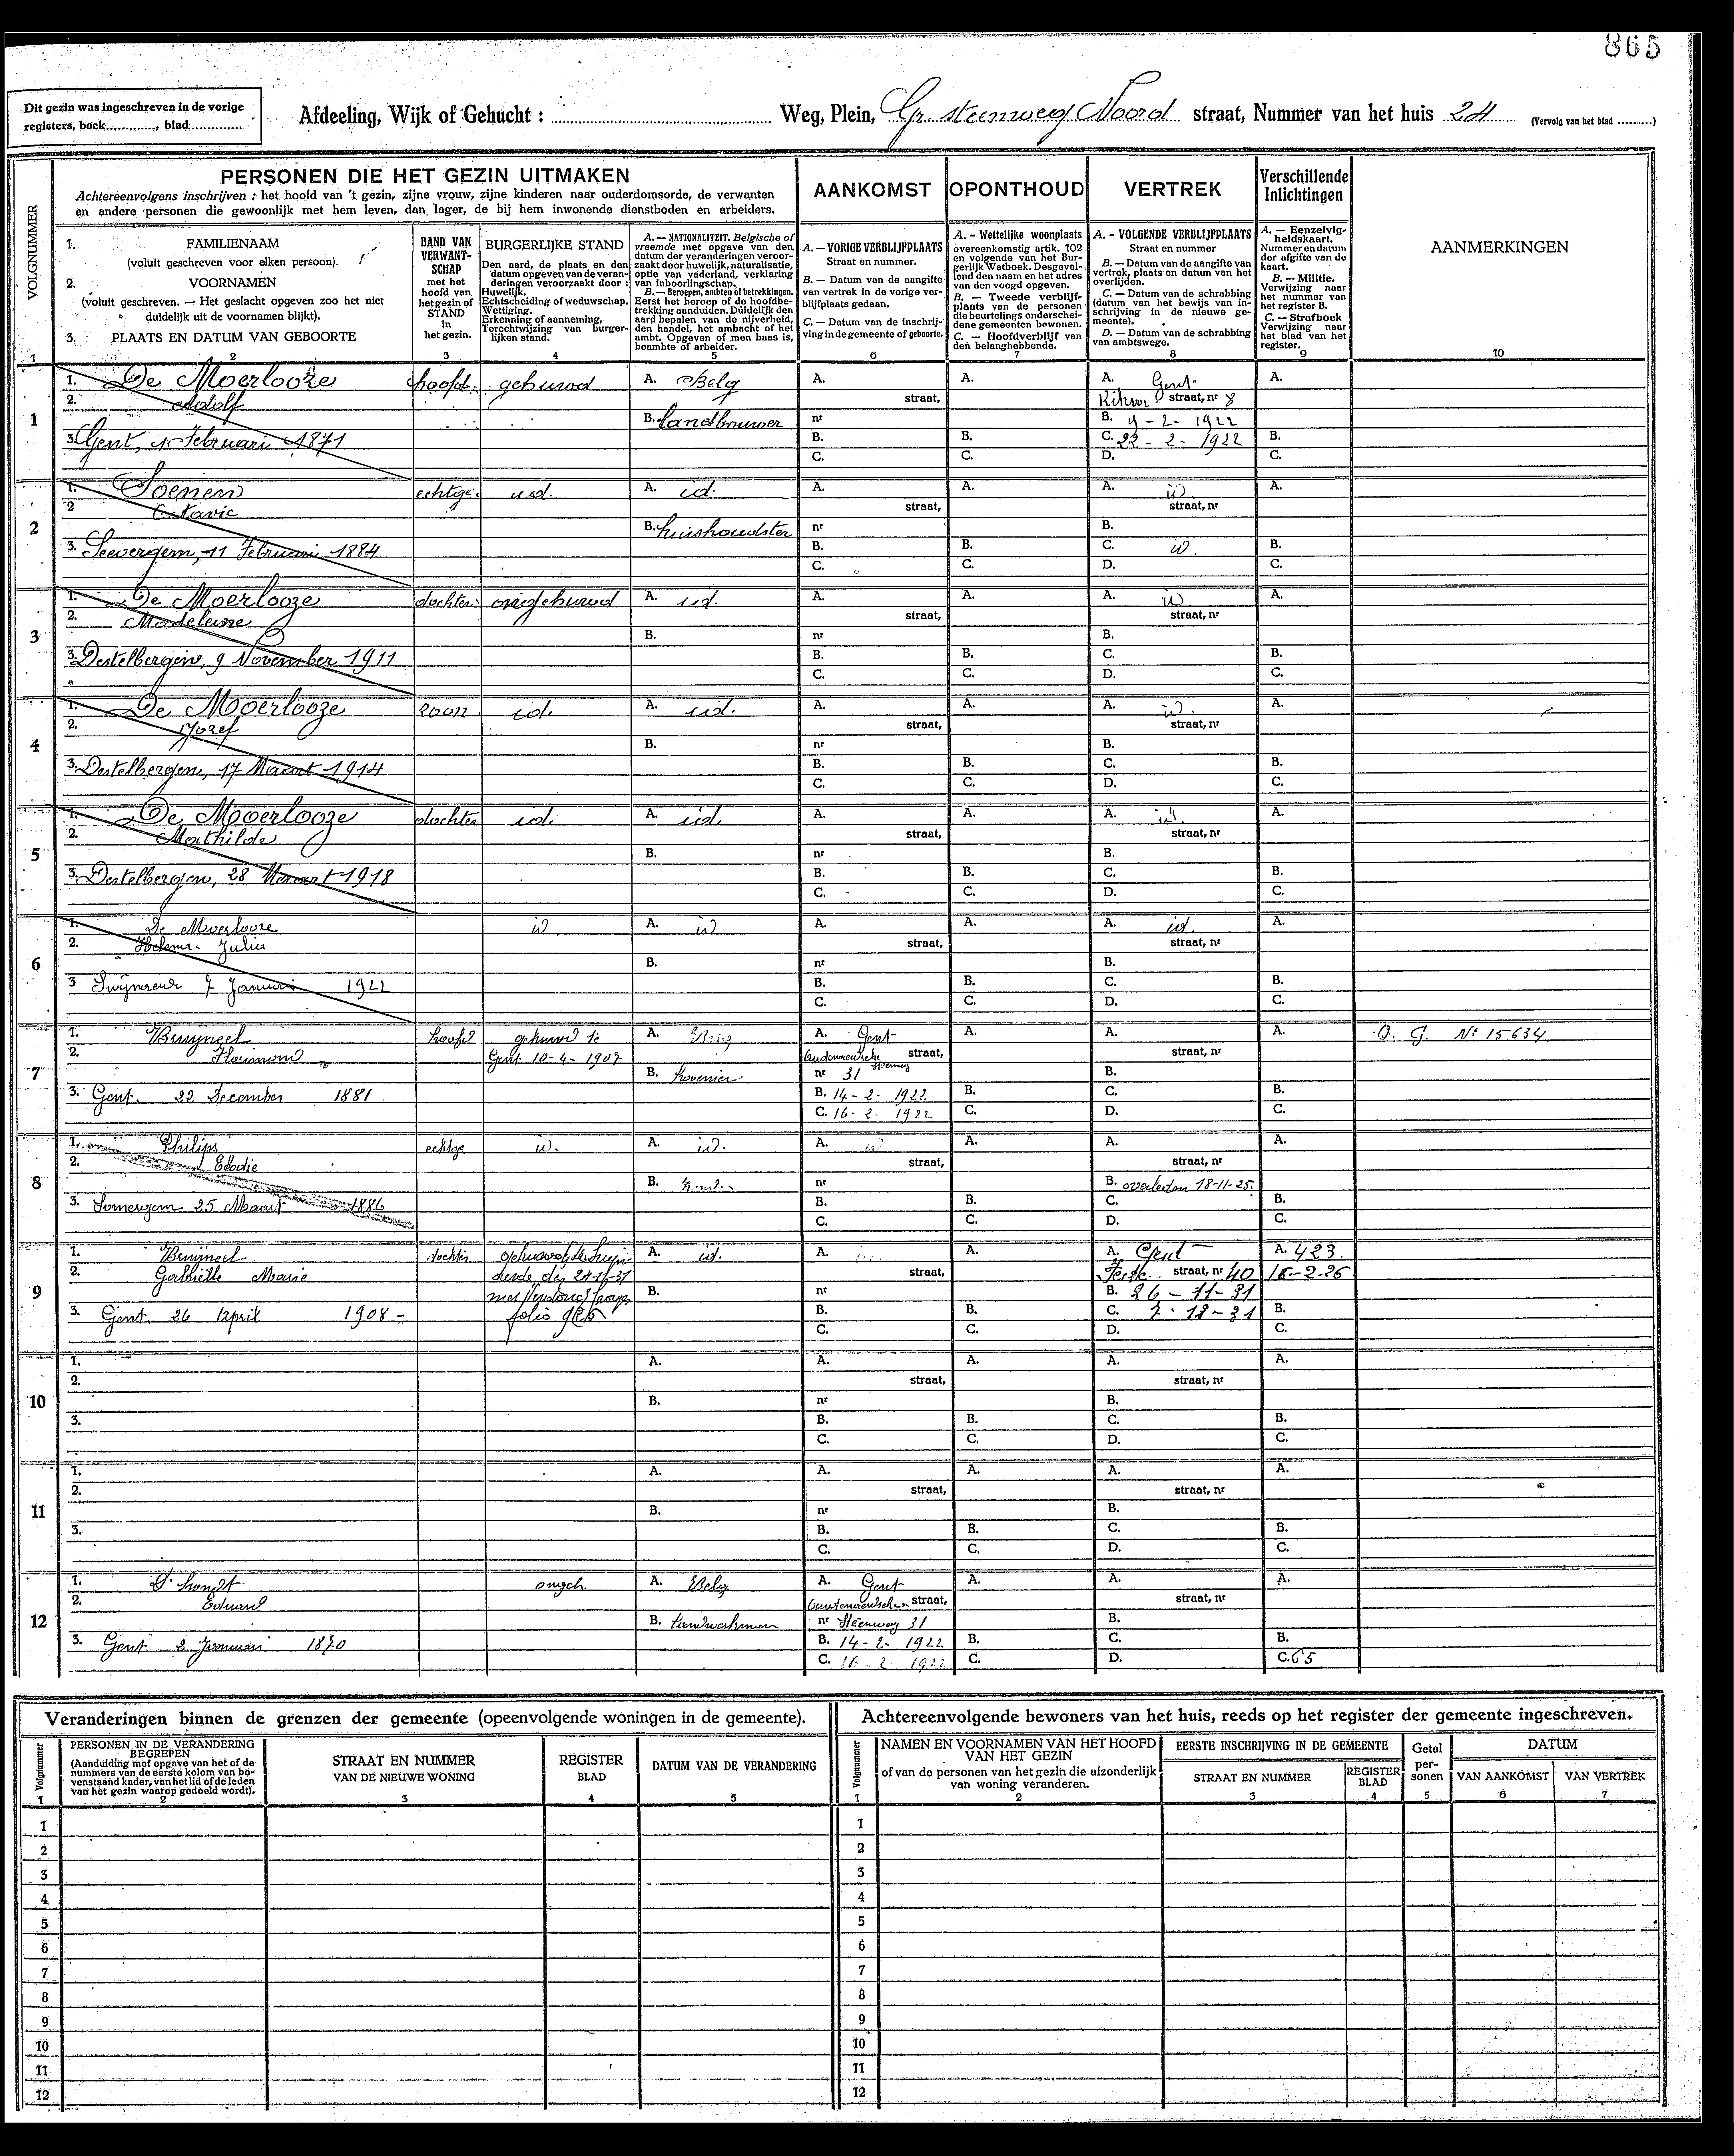 865
Dit gezin was ingeschreven in de vorige
registers, boek............, blad..............
Afdeeling, Wijk of Gehucht : ........................ Weg, Plein, Gr. steenweg Noord straat, Nummer van het huis 24 (Vervolg van het blad .........)
PERSONEN DIE HET GEZIN UITMAKEN
Achtereenvolgens inschrijven : het hoofd van 't gezin, zijne vrouw, zijne kinderen naar ouderdomsorde, de verwanten
en andere personen die gewoonlijk met hem leven, dan lager, de bij hem inwonende dienstboden en arbeiders.
AANKOMST
OPONTHOUD
VERTREK
Verschillende
Inlichtingen
VOLGNUMMER
1. FAMILIENAAM
(voluit geschreven voor elken persoon).
2. VOORNAMEN
(voluit geschreven. — Het geslacht opgeven zoo het niet
duidelijk uit de voornamen blijkt).
3. PLAATS EN DATUM VAN GEBOORTE
BAND VAN
VERWANT-
SCHAP
met het
hoofd van
het gezin of
STAND
in
het gezin.
BURGERLIJKE STAND
Den aard, de plaats en den
datum opgeven van de veran-
deringen veroorzaakt door :
Huwelijk.
Echtscheiding of weduwschap.
Wettiging.
Erkenning of aanneming.
Terechtwijzing van burger-
lijken stand.
A. — NATIONALITEIT. Belgische of
vreemde met opgave van den
datum der veranderingen veroor-
zaakt door huwelijk, naturalisatie,
optie van vaderland, verklaring
van inboorlingschap.
B. — Beroepen, ambten of betrekkingen.
Eerst het beroep of de hoofdbe-
trekking aanduiden. Duidelijk den
aard bepalen van de nijverheid,
den handel, het ambacht of het
ambt. Opgeven of men baas is,
beambte of arbeider.
A. — VORIGE VERBLIJFPLAATS
Straat en nummer.
B. — Datum van de aangifte
van vertrek in de vorige ver-
blijfplaats gedaan.
C. — Datum van de inschrij-
ving in de gemeente of geboorte.
A. - Wettelijke woonplaats
overeenkomstig artik. 102
en volgende van het Bur-
gerlijk Wetboek. Desgeval-
lend den naam en het adres
van den voogd opgeven.
B. — Tweede verblijf-
plaats van de personen
die beurtelings onderschei-
dene gemeenten bewonen.
C. — Hoofdverblijf van
den belanghebbende.
A. - VOLGENDE VERBLIJFPLAATS
Straat en nummer
B. — Datum van de aangifte van
vertrek, plaats en datum van het
overlijden.
C. — Datum van de schrabbing
(datum van het bewijs van in-
schrijving in de nieuwe ge-
meente).
D. — Datum van de schrabbing
van ambtswege.
A. — Eenzelvig-
heidskaart.
Nummer en datum
der afgifte van de
kaart.
B. — Militie.
Verwijzing naar
het nummer van
het register B.
C. — Strafboek
Verwijzing naar
het blad van het
register.
AANMERKINGEN
1 2 3 4 5 6 7 8 9 10
1
1. De Moerlooze hoofd gehuwd A. Belg A. A. A. Gent A.
2. Adolf straat, straat, nr 8
B. landbouwer nr B. 9-2-1922
3. Gent, 1 Februari 1871 B. B. C. 22-2-1922 B.
C. C. D. C.
2
1. Soenen echtge. id. A. id. A. A. A. id. A.
2 Octavie straat, straat, nr
B. huishoudster nr B.
3. Seevergem, 11 Februari 1884 B. B. C. id. B.
C. C. D. C.
3
1. De Moerlooze dochter ongehuwd A. id. A. A. A. id A.
2. Madeleine straat, straat, nr
B. nr B.
3. Destelbergen, 9 November 1911 B. B. C. B.
C. C. D. C.
4
1. De Moerlooze zoon id. A. id. A. A. A. id. A.
2. Jozef straat, straat, nr
B. nr B.
3. Destelbergen, 17 Maart 1914 B. B. C. B.
C. C. D. C.
5
1. De Moerlooze dochter id. A. id. A. A. A. id. A.
2. Mathilde straat, straat, nr
B. nr B.
3. Destelbergen, 28 Maart 1918 B. B. C. B.
C. C. D. C.
6
1. De Moerlooze id A. id A. A. A. id. A.
2. Helena Julia straat, straat, nr
B. nr B.
3 7 Januari 1922 B. B. C. B.
C. C. D. C.
7
1. Bruyneel hoofd gehuwd te A. Belg A. Gent A. A. A. O. G. N° 15634
2. Florimond Gent 10-4-1907 straat, straat, nr
B. hovenier nr 31 steenweg B.
3. Gent. 22 December 1881 B. 14-2-1922 B. C. B.
C. 16-2-1922 C. D. C.
8
1. Philips echtge id. A. id. A. id A. A. A.
2. Elodie straat, straat, nr
B. nr B. overleden 18-11-25.
3. Somergem 25 Maart 1886 B. B. C. B.
C. C. D. C.
9
1. Bruyneel dochter gehuwd A. id. A. A. A. Gent A. 423.
2. Gabrielle Marie straat, straat, nr 40 18-2-26
met B. nr B. 26-11-31
3. Gent. 26 April 1908 - folio B. B. C. 7-12-31 B.
C. C. D. C.
10
1. A. A. A. A. A.
2. straat, straat, nr
B. nr B.
3. B. B. C. B.
C. C. D. C.
11
1. A. A. A. A. A.
2. straat, straat, nr
B. nr B.
3. B. B. C. B.
C. C. D. C.
12
1. D'hondt ongeh. A. Belg A. Gent A. A. A.
2. Eduard straat, straat, nr
B. landwerkman nr Steenweg 31 B.
3. Gent 2 Januari 1870 B. 14-2-1922 B. C. B.
C. 16-2-1922 C. D. C. 65
Veranderingen binnen de grenzen der gemeente (opeenvolgende woningen in de gemeente).
Volgnummer
PERSONEN IN DE VERANDERING
BEGREPEN
(Aanduiding met opgave van het of de
nummers van de eerste kolom van bo-
venstaand kader, van het lid of de leden
van het gezin waarop gedoeld wordt).
STRAAT EN NUMMER
VAN DE NIEUWE WONING
REGISTER
BLAD
DATUM VAN DE VERANDERING
1 2 3 4 5
1
2
3
4
5
6
7
8
9
10
11
12
Achtereenvolgende bewoners van het huis, reeds op het register der gemeente ingeschreven.
Volgnummer
NAMEN EN VOORNAMEN VAN HET HOOFD
VAN HET GEZIN
of van de personen van het gezin die afzonderlijk
van woning veranderen.
EERSTE INSCHRIJVING IN DE GEMEENTE
STRAAT EN NUMMER
REGISTER
BLAD
Getal
per-
sonen
DATUM
VAN AANKOMST
VAN VERTREK
1 2 3 4 5 6 7
1
2
3
4
5
6
7
8
9
10
11
12